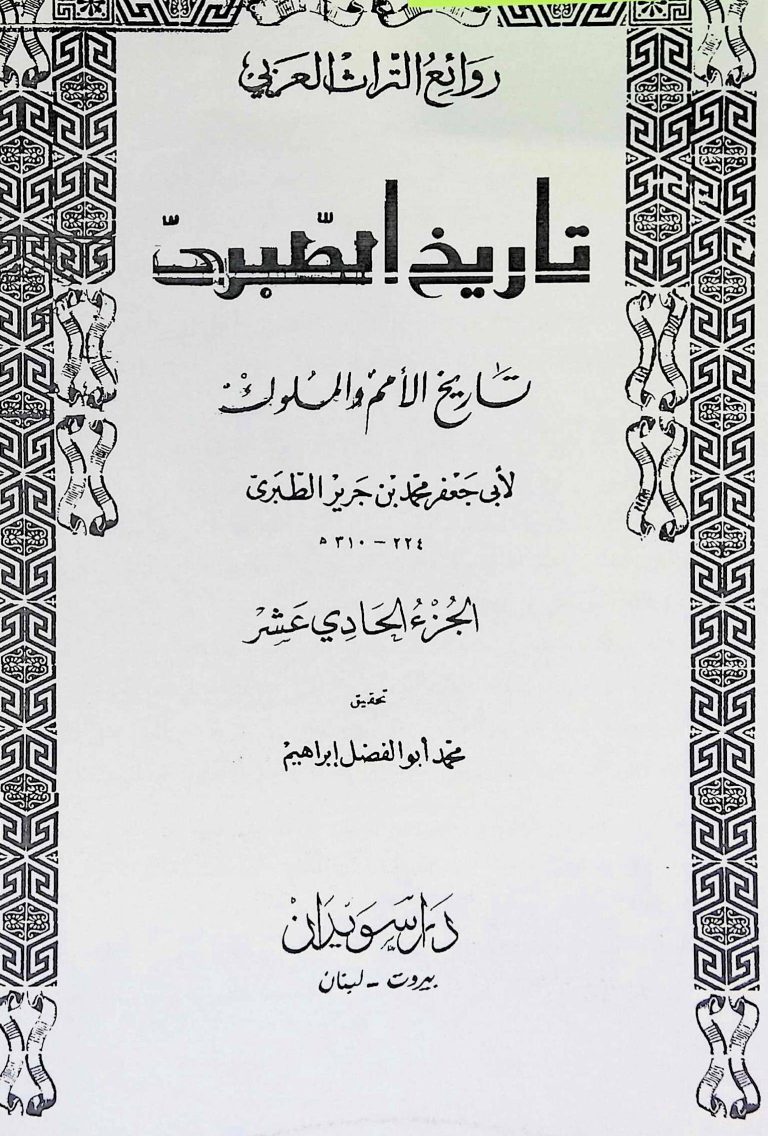 روَائِعُ التّراثِ العَرَبي
تاريخ الطّبرىّ
تَاريخ الأمَم وَالملُوك
لأبى جَعْفر محمّد بْن جَرير الطّبَرىّ
٢٢٤ - ٣١٠ ه
الجُزْءُ الحَادِي عَشَر
تحقيق
محمّد أبو الفضل إبراهيم
دَار سوَيدَان
بيروت - لبنان